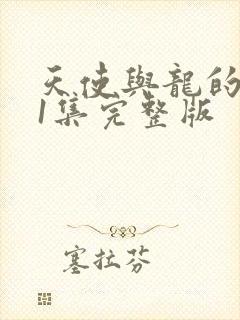 天使與龍的
1集完整版
塞拉芬